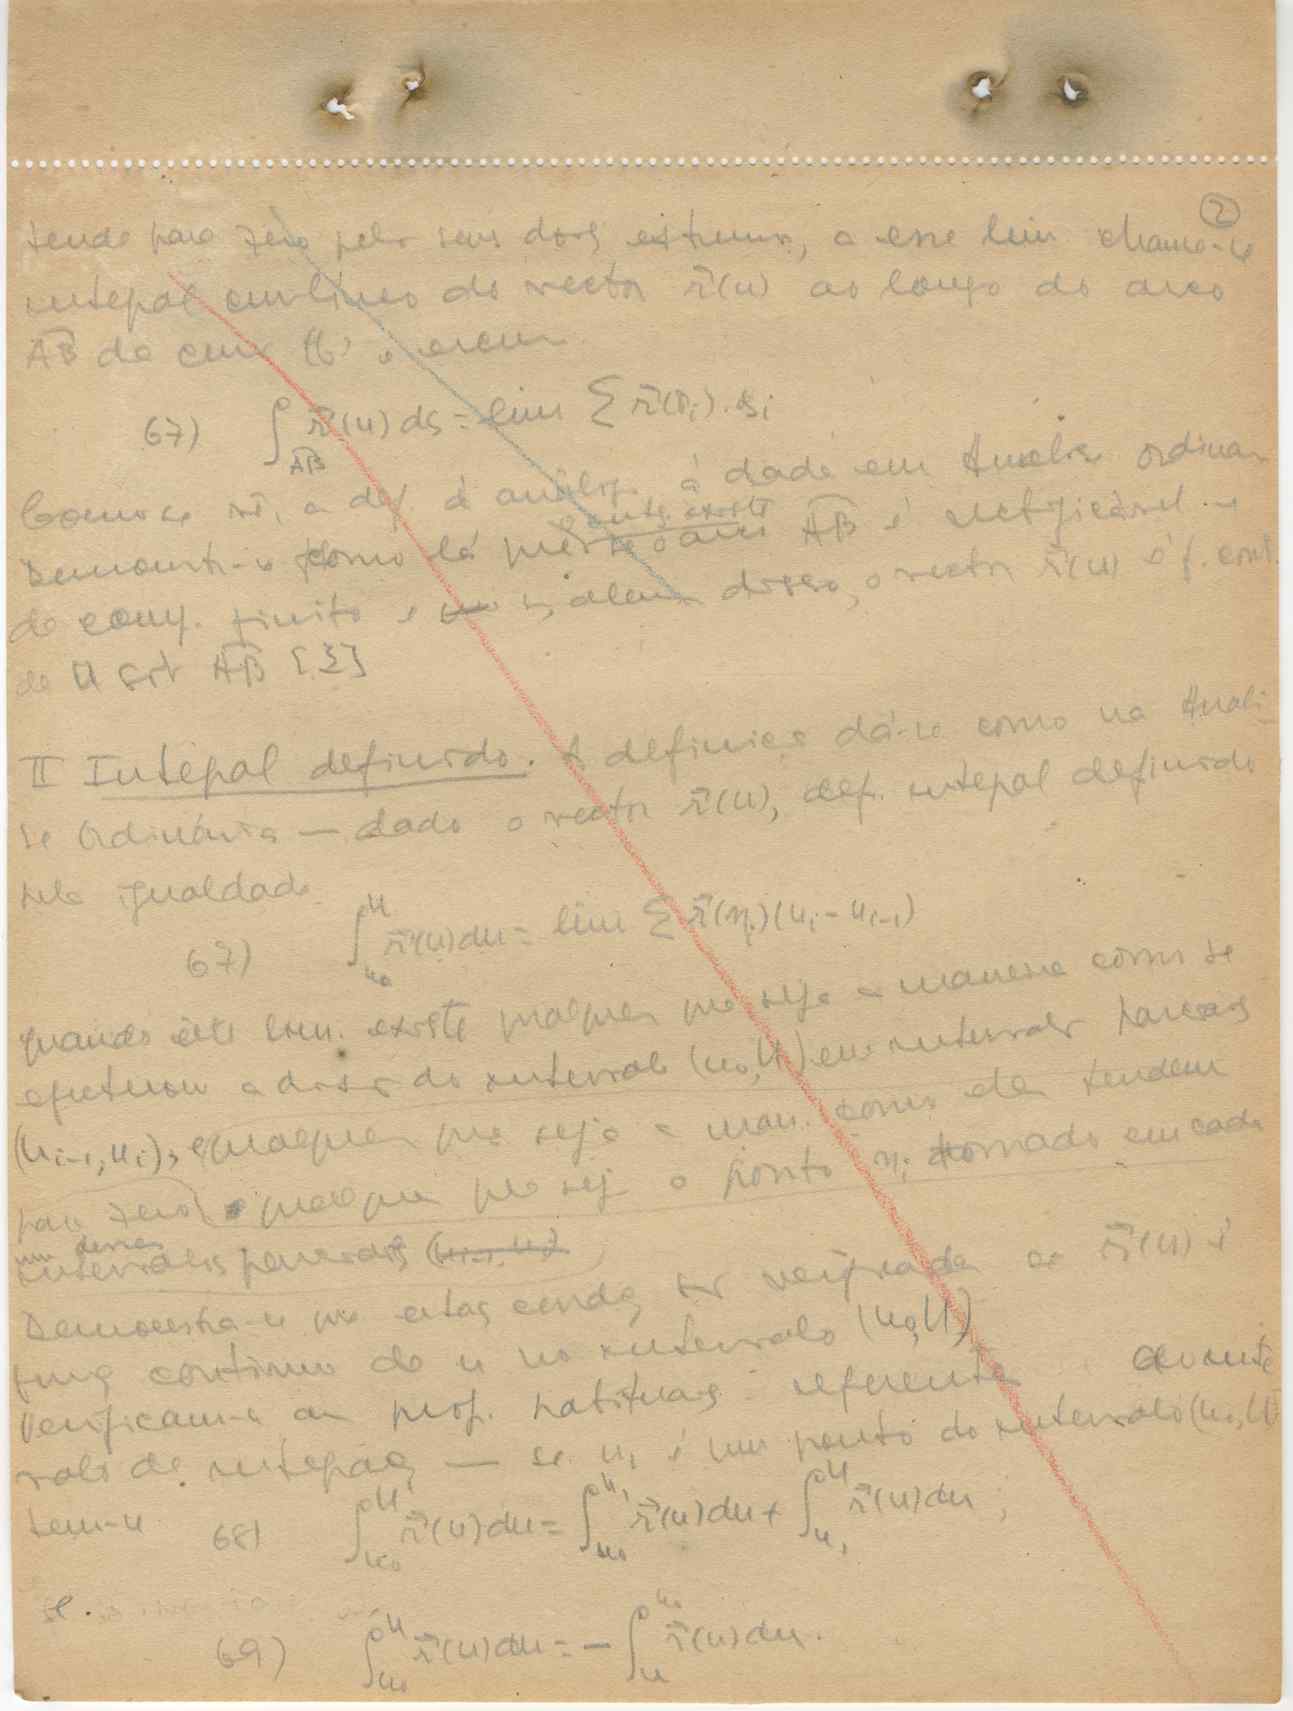 2
tende para zero pelos seus dois extremos, a esse lim chama-se
integral curvilíneo do vector r⃗(u) ao longo do arco
AB da curva e escreve
67) ∫_AB r⃗(u) ds = lim Σ r⃗(  i). si
Como se vê, a def. é análoga à dada em Analise Ordinar
este existe
Demonstra-se como lá que se o arco AB é rectificável e
de comp. finito e se, alem disso, o vector r⃗(u) é f. cont.
de u sob AB [Σ]
II Integral definido. A definição dá-se como na Anali-
se Ordinária — dado o vector r⃗(u), def. integral definido
pela igualdade
67) ∫_{u₀}^{U} r⃗(u) du = lim Σ r⃗(ηi)(ui - ui-1)
quando este lim. existe qualquer que seja a maneira como se
efectuou a divisão do intervalo (u₀,U) em intervalos parciais
(ui-1, ui), e qualquer que seja a man. como eles tendem
para zero e qualquer que seja o ponto ηi tomado em cada
um desses
intervalos parciais (ui-1, ui)
Demonstra-se que estas condições são verificadas se r⃗(u) é
função contínua de u no intervalo (u₀,U)
Verificam-se as prop. habituais referentes ao inter
valo de integração — se u₁ é um ponto do intervalo (u₀,U)
tem-se 68) ∫_{u₀}^{U} r⃗(u) du = ∫_{u₀}^{u₁} r⃗(u) du + ∫_{u₁}^{U} r⃗(u) du ;
e.
69) ∫_{u₀}^{U} r⃗(u) du = - ∫_{U}^{u₀} r⃗(u) du.